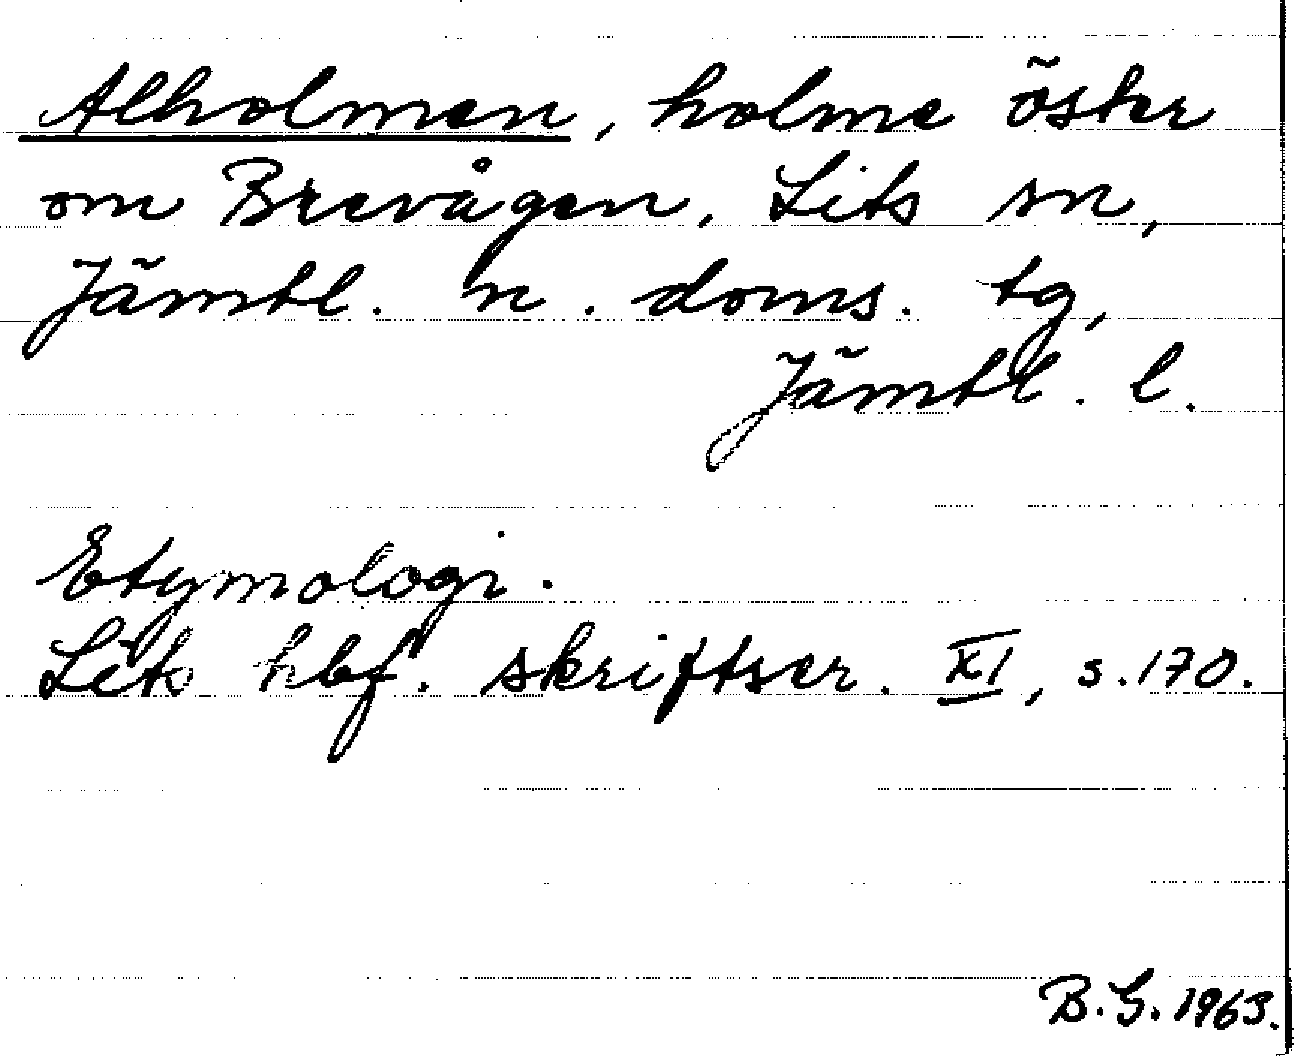 Alholmen, holme öster
om Brevågen, Lits sn,
Jämtl. n. doms. tg,
Jämtl. l.
Etymologi.
Lits hbf. skriftser. XI, s. 170.
B.G. 1963.